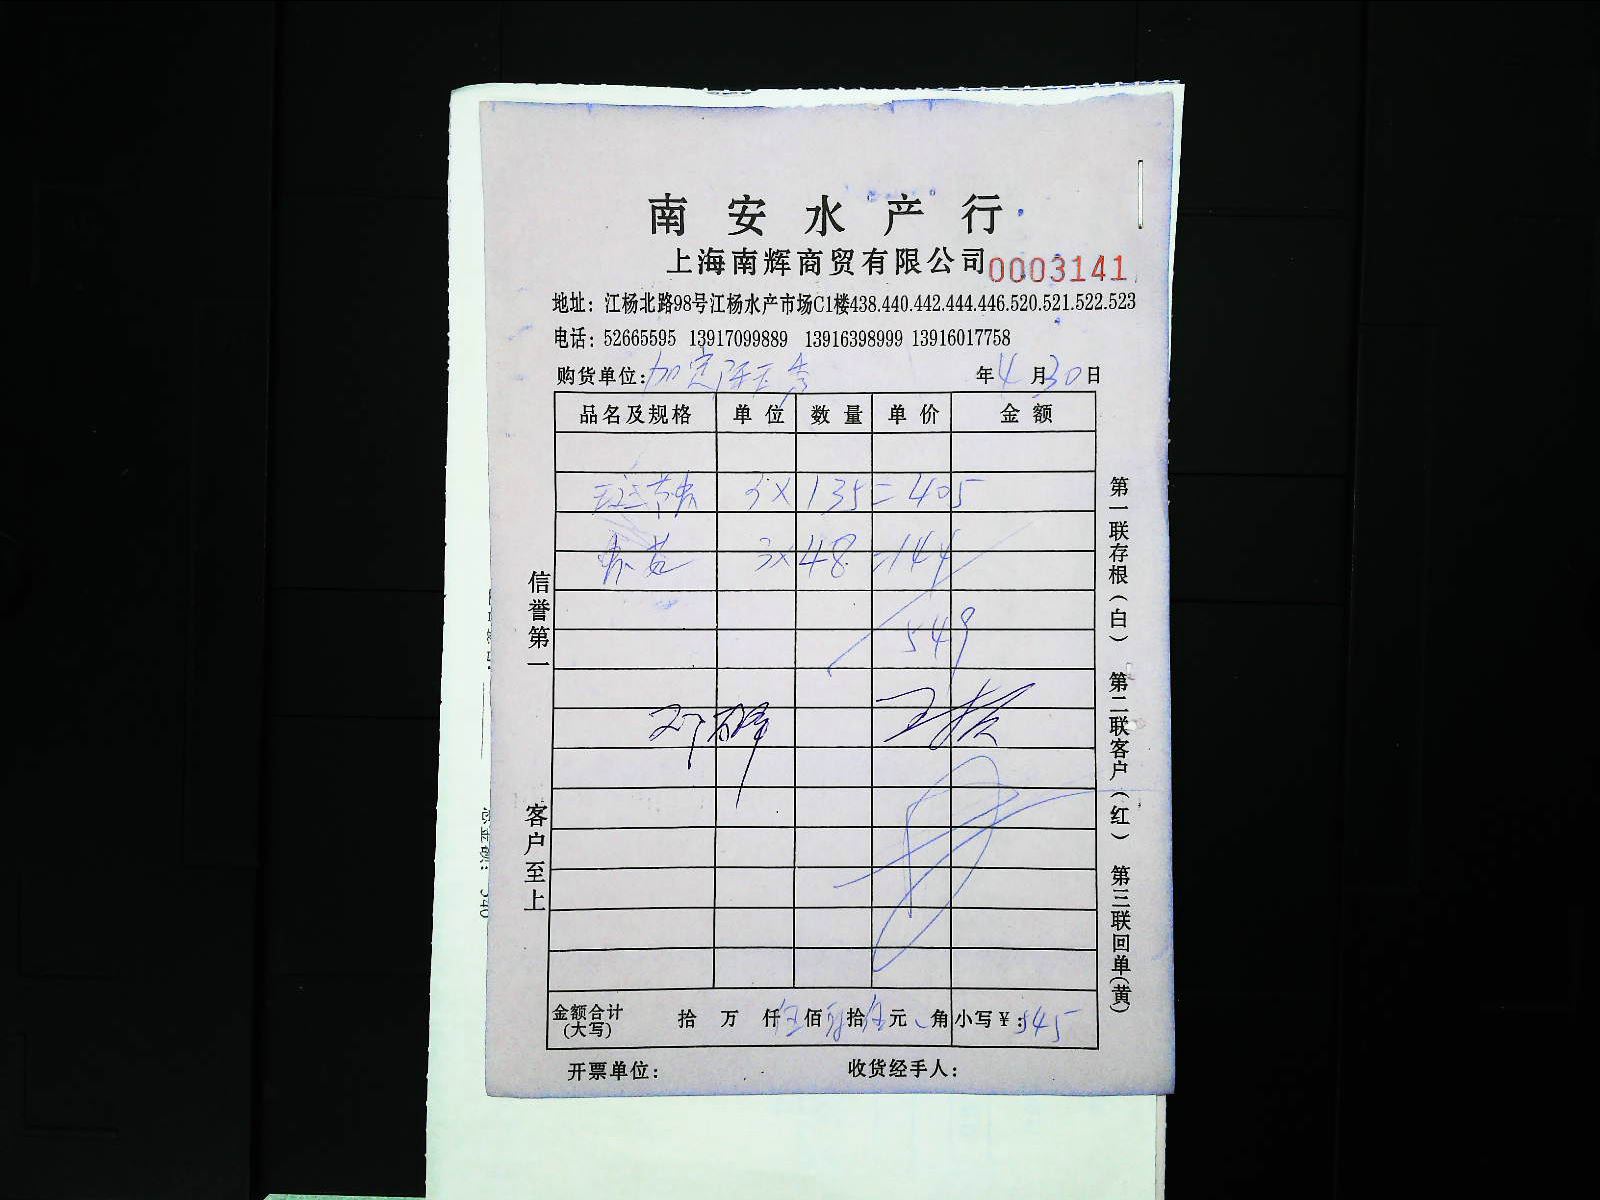 南安水产行
上海南辉商贸有限公司 0003141
地址：江杨北路98号江杨水产市场C1楼438.440.442.444.446.520.521.522.523
电话：52665595 13917099889 13916398999 13916017758
购货单位： 年4月30日
品名及规格 单位 数量 单价 金额
3×135=405
3×48=144
549
信誉第一
客户至上
第一联存根（白） 第二联客户（红） 第三联回单（黄）
金额合计（大写） 拾 万 仟伍佰肆拾伍元 角 小写￥：545
开票单位： 收货经手人：